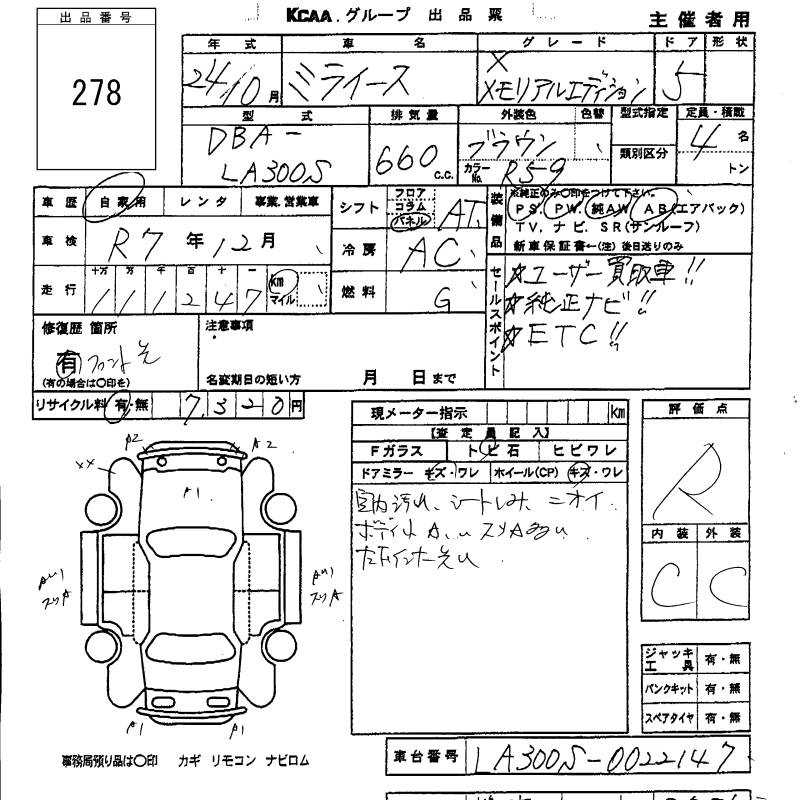 KCAA グループ 出品票
主催者用
出品番号
278
年式 車名 グレード ドア 形状
24/10月 ミライース X メモリアルエディション 5
型式 排気量 外装色 色替 型式指定 定員・積載
DBA-LA300S 660 c.c. ブラウン 類別区分 4名
カラーNo. R59 トン
車歴 自家用 レンタ 事業、営業車
シフト フロア コラム パネル AT
車検 R7年12月
冷房 AC
走行 十万 万 千 百 十 一 km マイル
111247
燃料 G
装備品
※純正のみ○印をつけて下さい。
PS. PW. 純AW. AB(エアバック)
TV. ナビ. SR(サンルーフ)
新車保証書←(注)後日送りのみ
セールスポイント
☆ユーザー買取車!!
☆純正ナビ!!
☆ETC!!
修復歴 箇所 注意事項
有 フロント
(有の場合は○印を)
名変期日の短い方 月 日まで
リサイクル料 有・無 7,320円
現メーター指示 km
【査定員記入】
Fガラス トビ石 ヒビワレ
ドアミラー キズ・ワレ ホイール(CP) キズ・ワレ
室内汚れ、シートしみ、ニオイ
評価点
R
内装 外装
C C
A2 A2
XX
A1
スリA スリA
A1 A1
ジャッキ工具 有・無
パンクキット 有・無
スペアタイヤ 有・無
事務局預り品は○印 カギ リモコン ナビロム
車台番号 LA300S-0022147